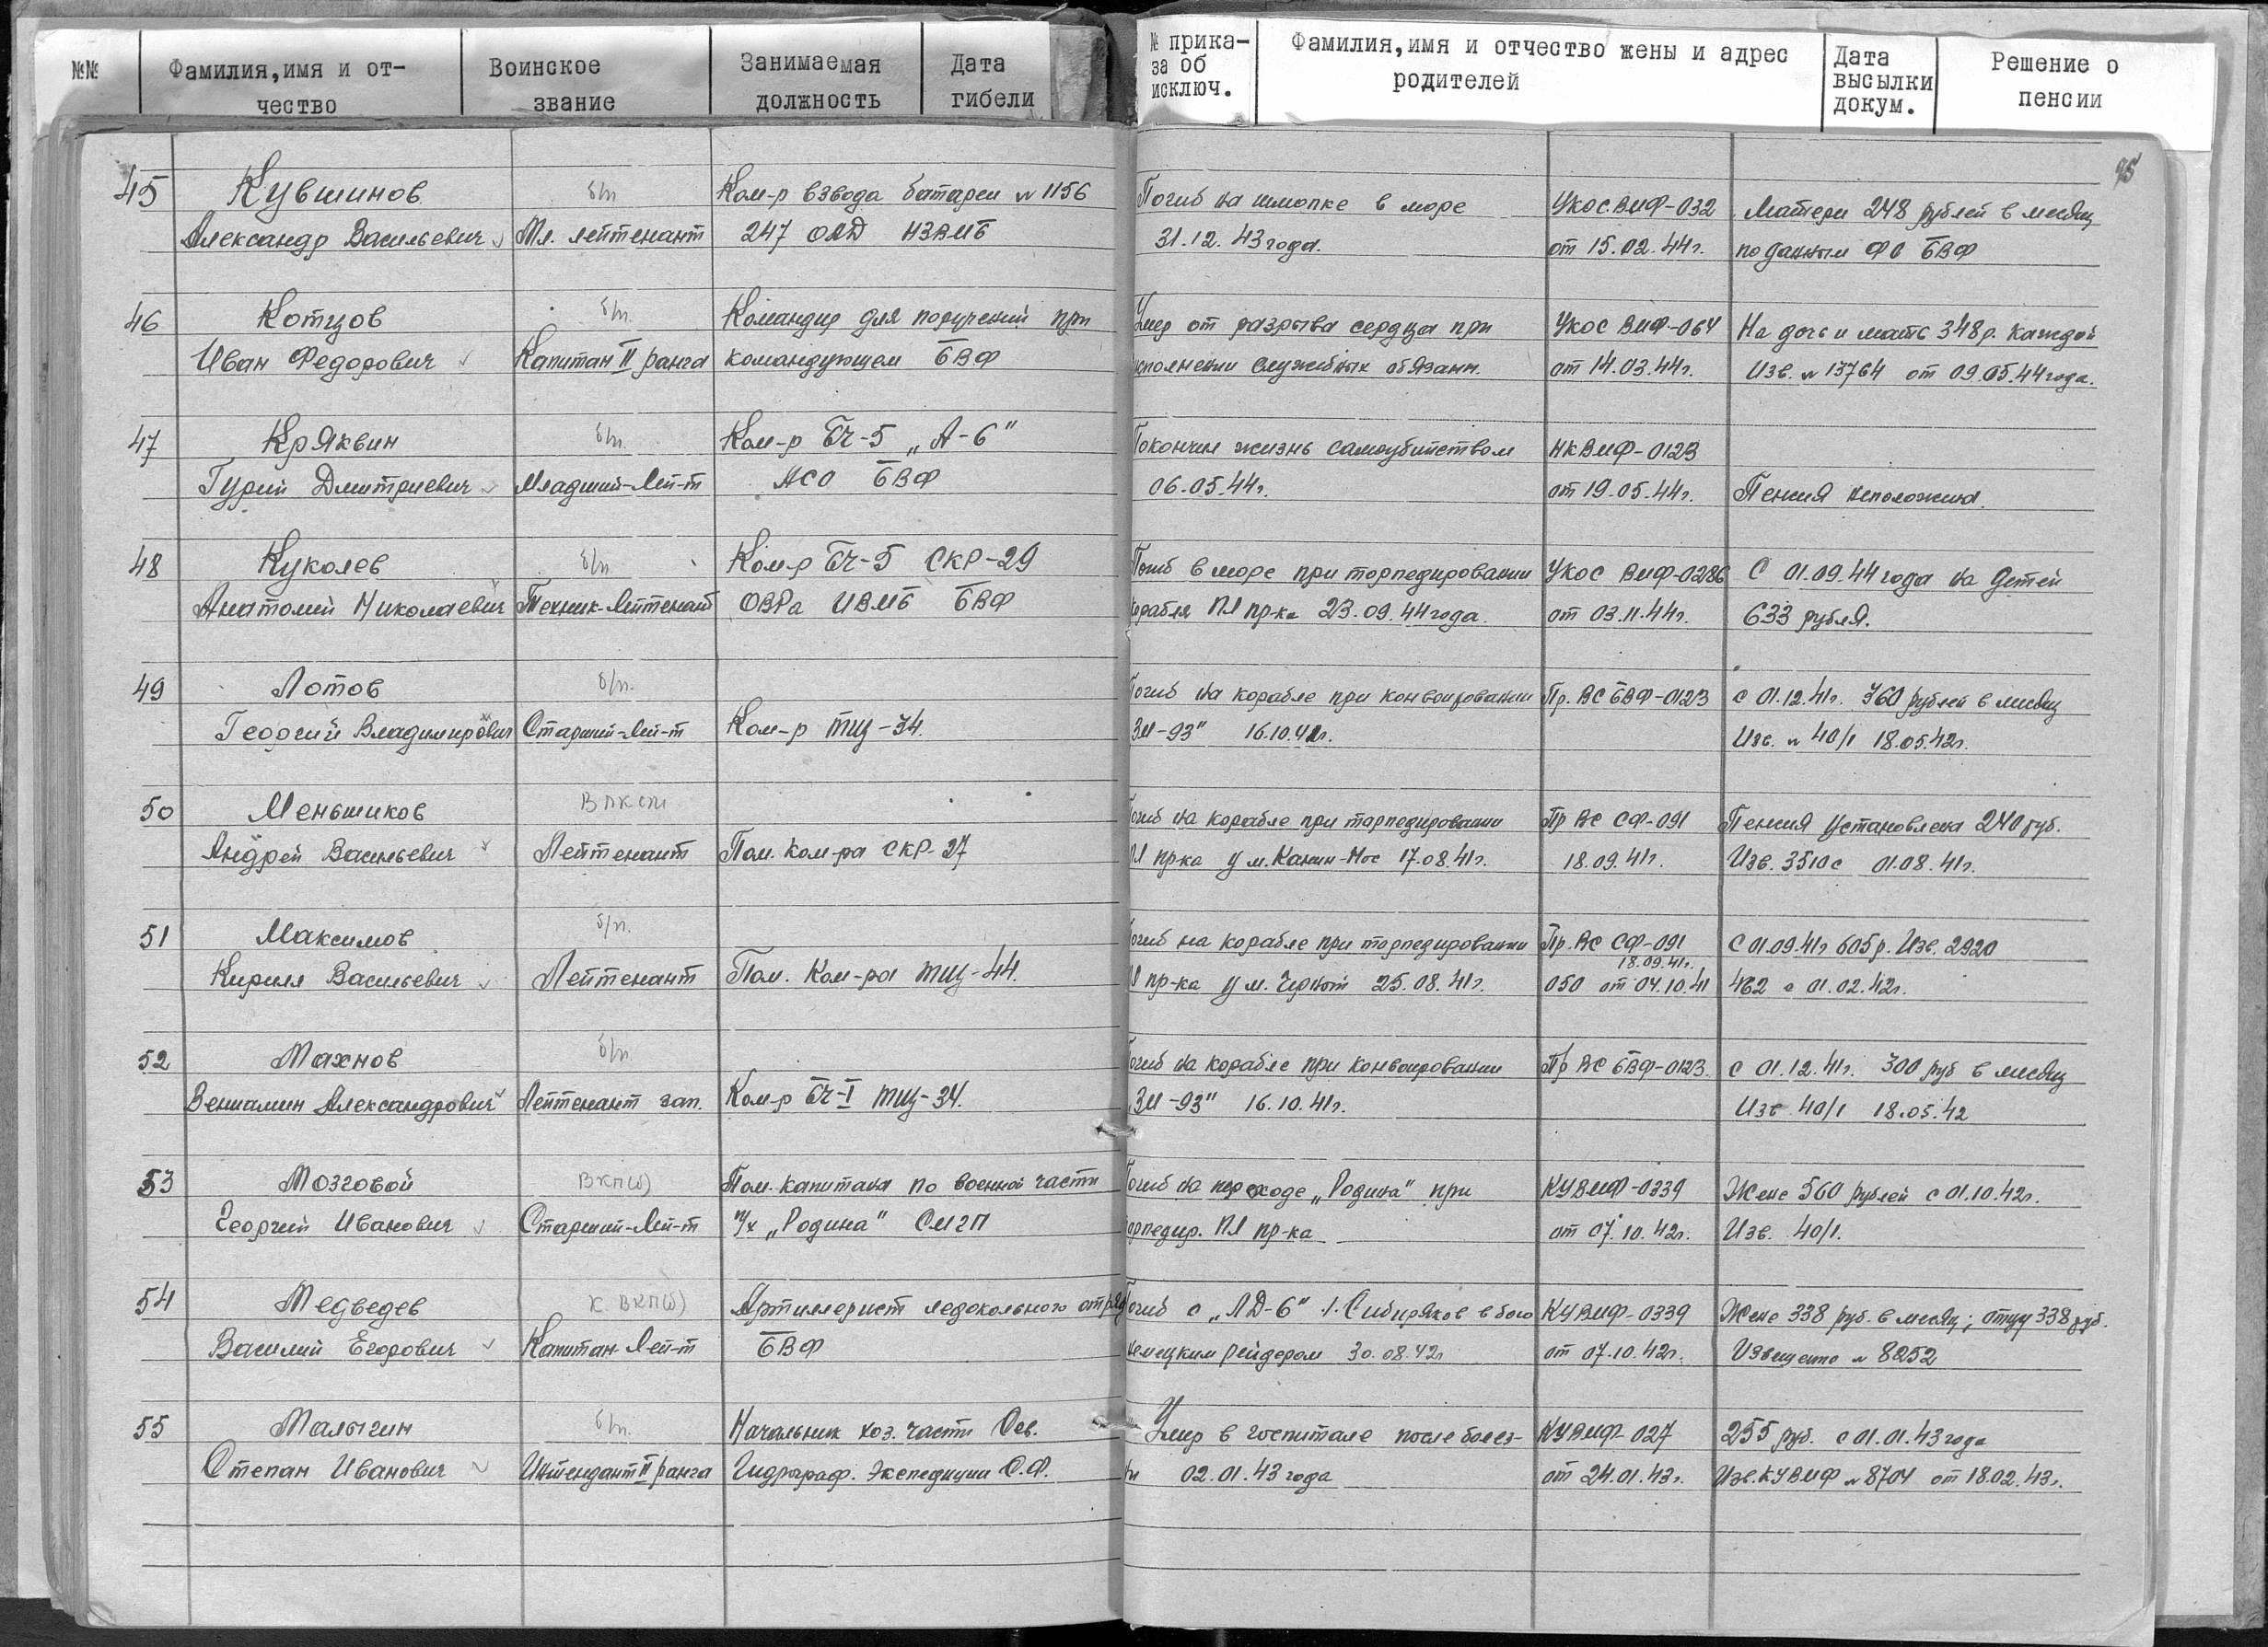 №№
Фамилия,имя и от-
чество
Воинское
звание
Занимаемая
должность
Дата
гибели
№ прика-
за об
исключ.
Фамилия,имя и отчество жены и адрес
родителей
Дата
высылки
докум.
Решение о
пенсии
45 Кувшинов б/п Ком-р взвода батареи № 1156 Погиб на шлюпке в море УКОС ВМФ-032 Матери 248 рублей в месяц
Александр Васильевич Мл. лейтенант 247 ОАД НЗВМБ 31.12.43 года. от 15.02.44г. по данным ФО БВФ
46 Котцов б/п. Командир для поручений при Умер от разрыва сердца при УКОС ВМФ-064 На дочь и мать 348 р. каждой
Иван Федорович Капитан II ранга командующем БВФ исполнении служебных обязанн. от 14.03.44г. Изв. № 13764 от 09.05.44 года.
47 Кряквин б/п. Ком-р БЧ-5 „А-6" Покончил жизнь самоубийством НКВМФ-0123
Гурий Дмитриевич Младший-Лей-т АСО БВФ 06.05.44г. от 19.05.44г. Пенсия неположена.
48 Куколев б/п Ком-р БЧ-5 СКР-29 Погиб в море при торпедировании УКОС ВМФ-0286 С 01.09.44 года на детей
Анатолий Николаевич Техник-Лейтенант ОВРа ИВМБ БВФ корабля ПЛ пр-ка 23.09.44 года. от 03.11.44г. 633 рубля.
49 Лотов б/п. Погиб на корабле при конвоировании Пр. ВС БВФ-0123 с 01.12.41г. 360 рублей в месяц
Георгий Владимирович Старший-Лей-т Ком-р ТЩ-34. ЗМ-93" 16.10.41г. Изв. № 40/1 18.05.42г.
50 Меньшиков Погиб на корабле при торпедировании Пр ВС СФ-091 Пенсия установлена 240 руб.
Андрей Васильевич Лейтенант Пом. ком-ра СКР-27 ПЛ пр-ка у м. Канин-Нос 17.08.41г. 18.09.41г. Изв. 3510 с 01.08.41г.
51 Максимов б/п. Погиб на корабле при торпедировании Пр. ВС СФ-091 С 01.09.41г 605 р. Изв. 2920
18.09.41г.
Кирилл Васильевич Лейтенант Пом. Ком-ра ТЩ-44. ПЛ пр-ка у м. Черный 25.08.41г. 050 от 04.10.41 462 с 01.02.42г.
52 Махнов б/п. Погиб на корабле при конвоировании Пр ВС БВФ-0123. с 01.12.41г. 300 руб в месяц
Вениамин Александрович Лейтенант зап. Ком-р БЧ-I ТЩ-34. ЗМ-93" 16.10.41г. Изв 40/1 18.05.42
53 Мозговой ВКП(б) Пом. капитана по военной части Погиб на переходе „Родина" при КУВМФ-0339 Жене 560 рублей с 01.10.42г.
Георгий Иванович Старший-Лей-т п/х „Родина" СМГП торпедир. ПЛ пр-ка от 07.10.42г. Изв. 40/1.
54 Медведев к. ВКП(б) Артиллерист ледокольного отряда Погиб с „ЛД-6" л. Сибиряков в бою КУВМФ-0339 Жене 338 руб. в месяц; отцу 338 руб.
Василий Егорович Капитан-Лей-т БВФ немецким рейдером 30.08.42г от 07.10.42г. Извещение № 8252
55 Малыгин б/п. Начальник хоз. части Сев. Умер в госпитале после болез- КУВМФ-027 255 руб. с 01.01.43 года
Степан Иванович Интендант II ранга Гидрограф. Экспедиции С.Ф. ни 02.01.43 года от 24.01.43г. Изв. КУВМФ № 8704 от 18.02.43г.